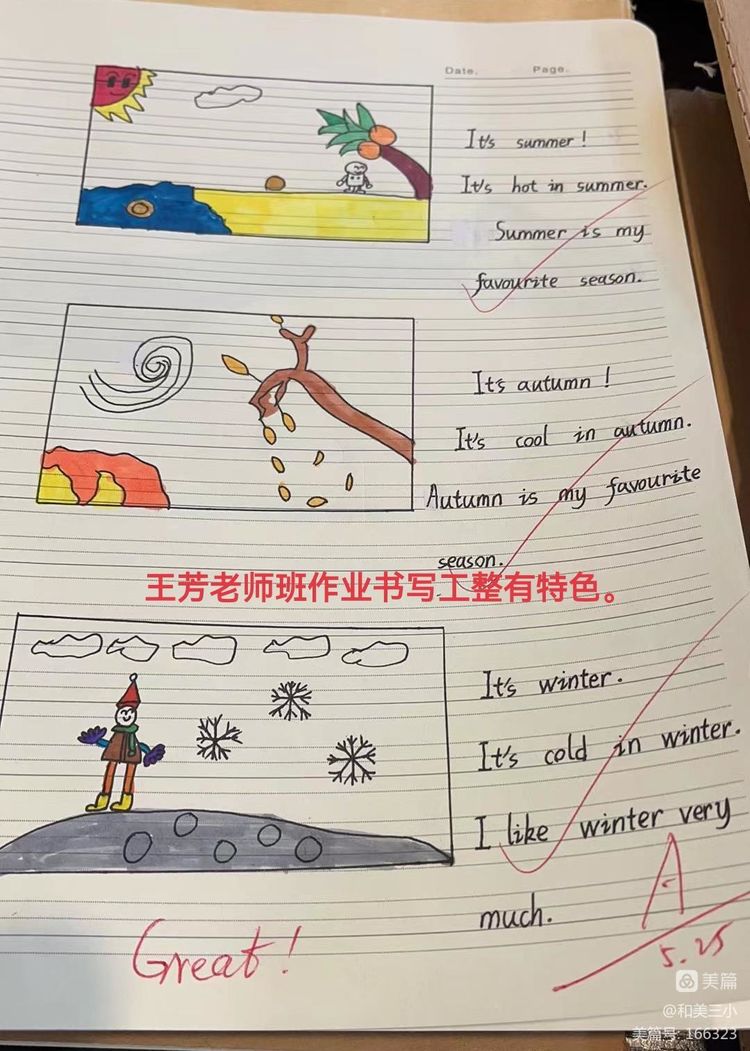 Date.
Page.
It's summer!
It's hot in summer.
Summer is my
favourite season.
It's autumn!
It's cool in autumn.
Autumn is my favourite
season.
王芳老师班作业书写工整有特色。
It's winter.
It's cold in winter.
I like winter very
much.
A
5.25
Great!
美篇
@和美三小
美篇号: 166323